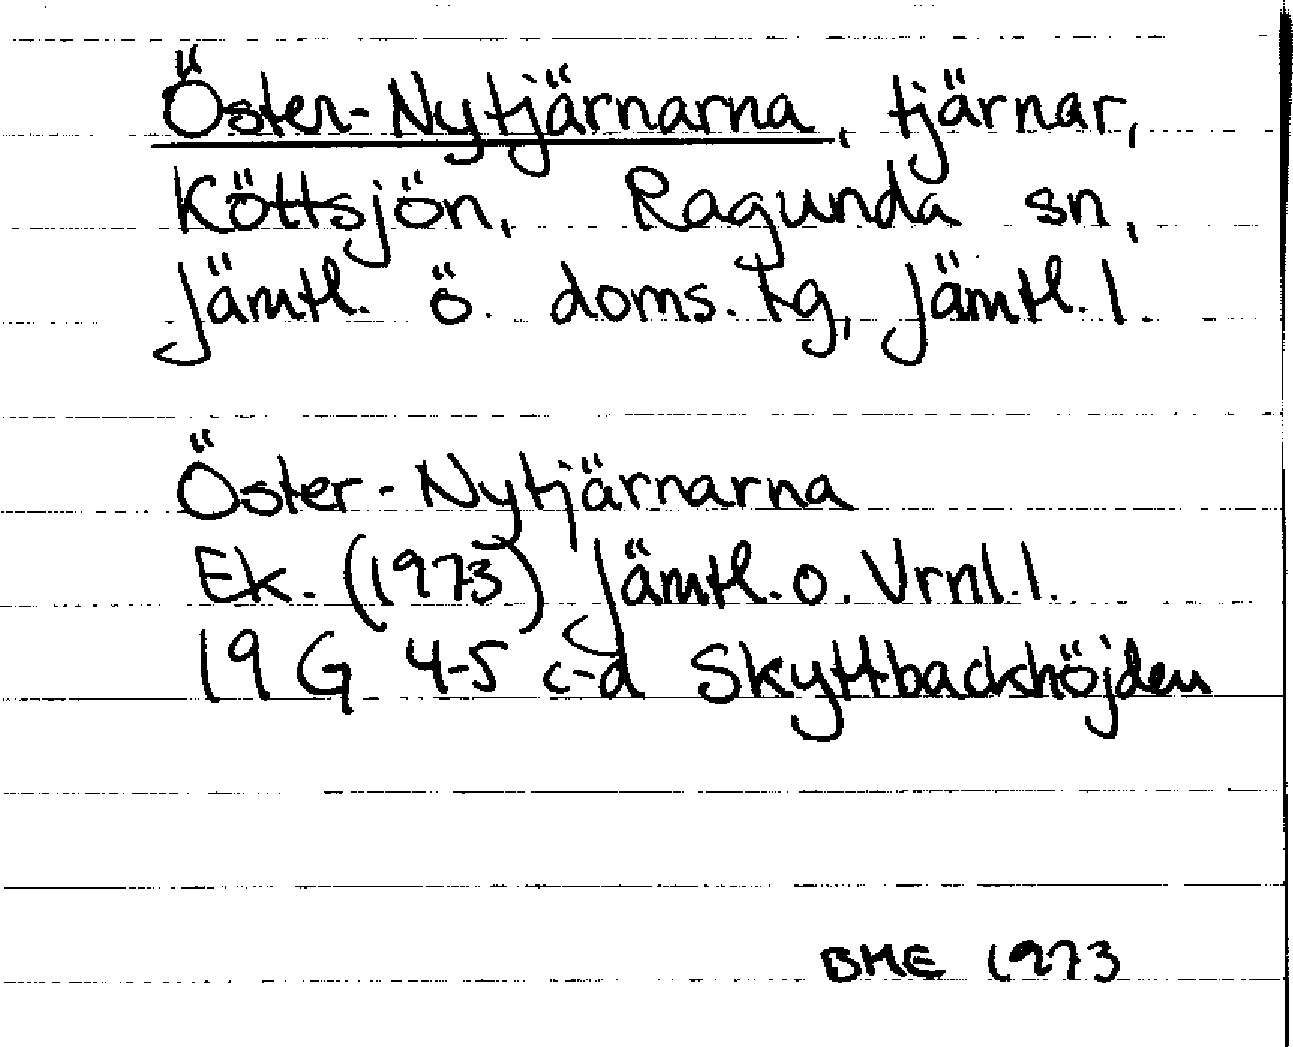 Öster-Nytjärnarna, tjärnar,
Köttsjön, Ragunda sn,
Jämtl. ö. doms. tg, Jämtl. l.
Öster-Nytjärnarna
Ek. (1973) Jämtl. o. Vrnl. l.
19 G 4-5 c-d Skyttbackshöjden
BME 1973